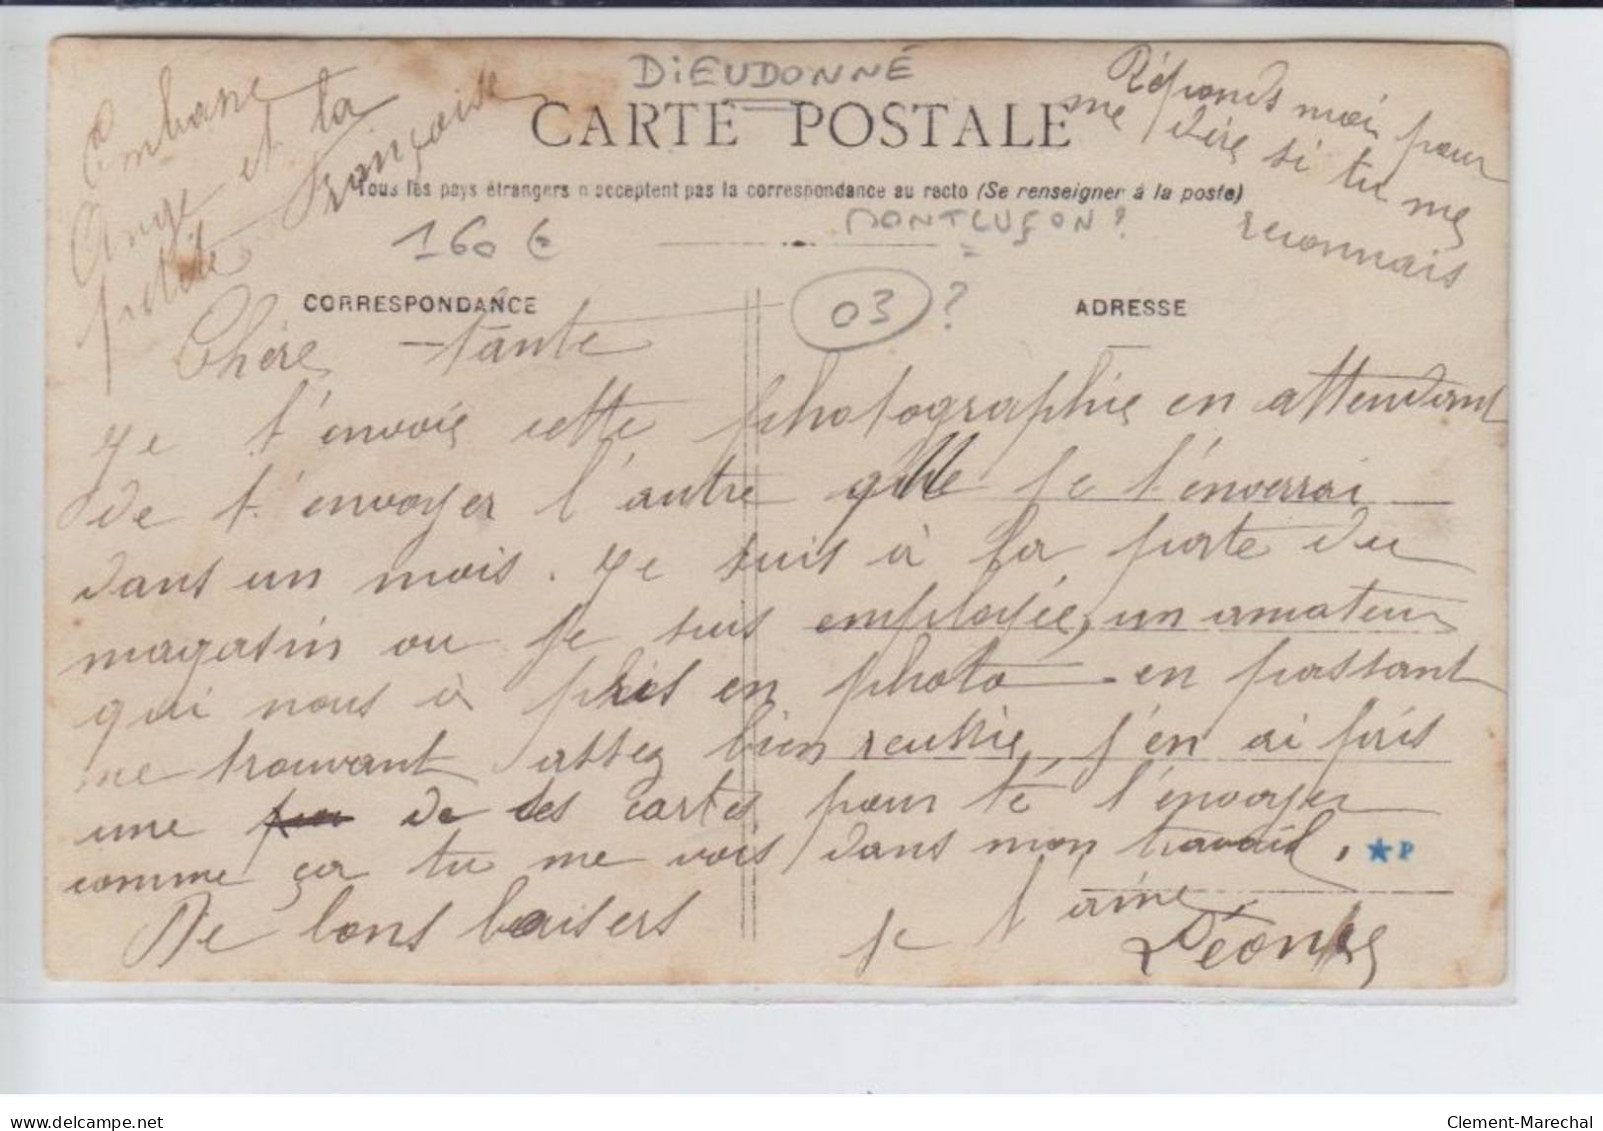 DiEUDONNÉ
CARTE POSTALE
Tous les pays étrangers n'acceptent pas la correspondance au recto (Se renseigner à la poste)
Embrasse
Ange et la
petite Françoise
Réponds moi pour
me dire si tu me
reconnais
160 €
MONTLUÇON ?
03 ?
CORRESPONDANCE
ADRESSE
Chère tante
Je t'envoie cette photographie en attendant
de t'envoyer l'autre que je t'enverrai
dans un mois. Je suis à la porte du
magasin ou je suis employée, un amateur
qui nous à pris en photo en passant
me trouvant assez bien reussie, j'en ai pris
une de ses cartes pour te l'envoyer
comme ça tu me vois dans mon travail. ★P
De bons baisers
je t'aime
Léonie
delcampe.net
Clement-Marechal